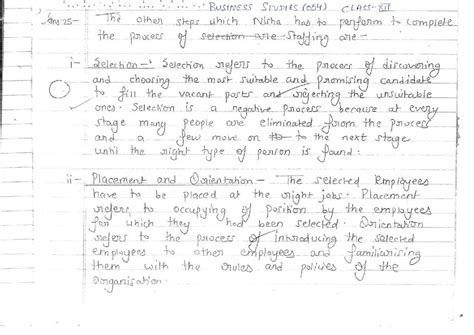 BUSINESS STUDIES (054) CLASS-XII
Ans 25- The other steps which Nisha has to perform to complete
the process of selection are Staffing are -
i- Selection - Selection refers to the process of discovering
and choosing the most suitable and promising candidate
to fill the vacant posts and rejecting the unsuitable
ones. Selection is a negative process because at every
stage many people are eliminated from the process
and a few move on to to the next stage
until the right type of person is found.
ii- Placement and Orientation - The selected Employees
have to be placed at the right jobs. Placement
refers to occupying of position by the employees
for which they had been selected. Orientation
refers to the process of introducing the selected
employees to other employees and familiarising
them with the rules and polives of the
Organisation.